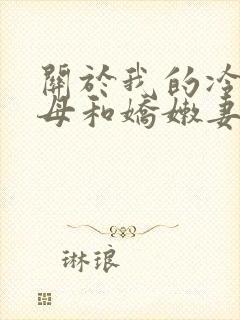 關於我的冷
母和嬌嫩妻
琳琅